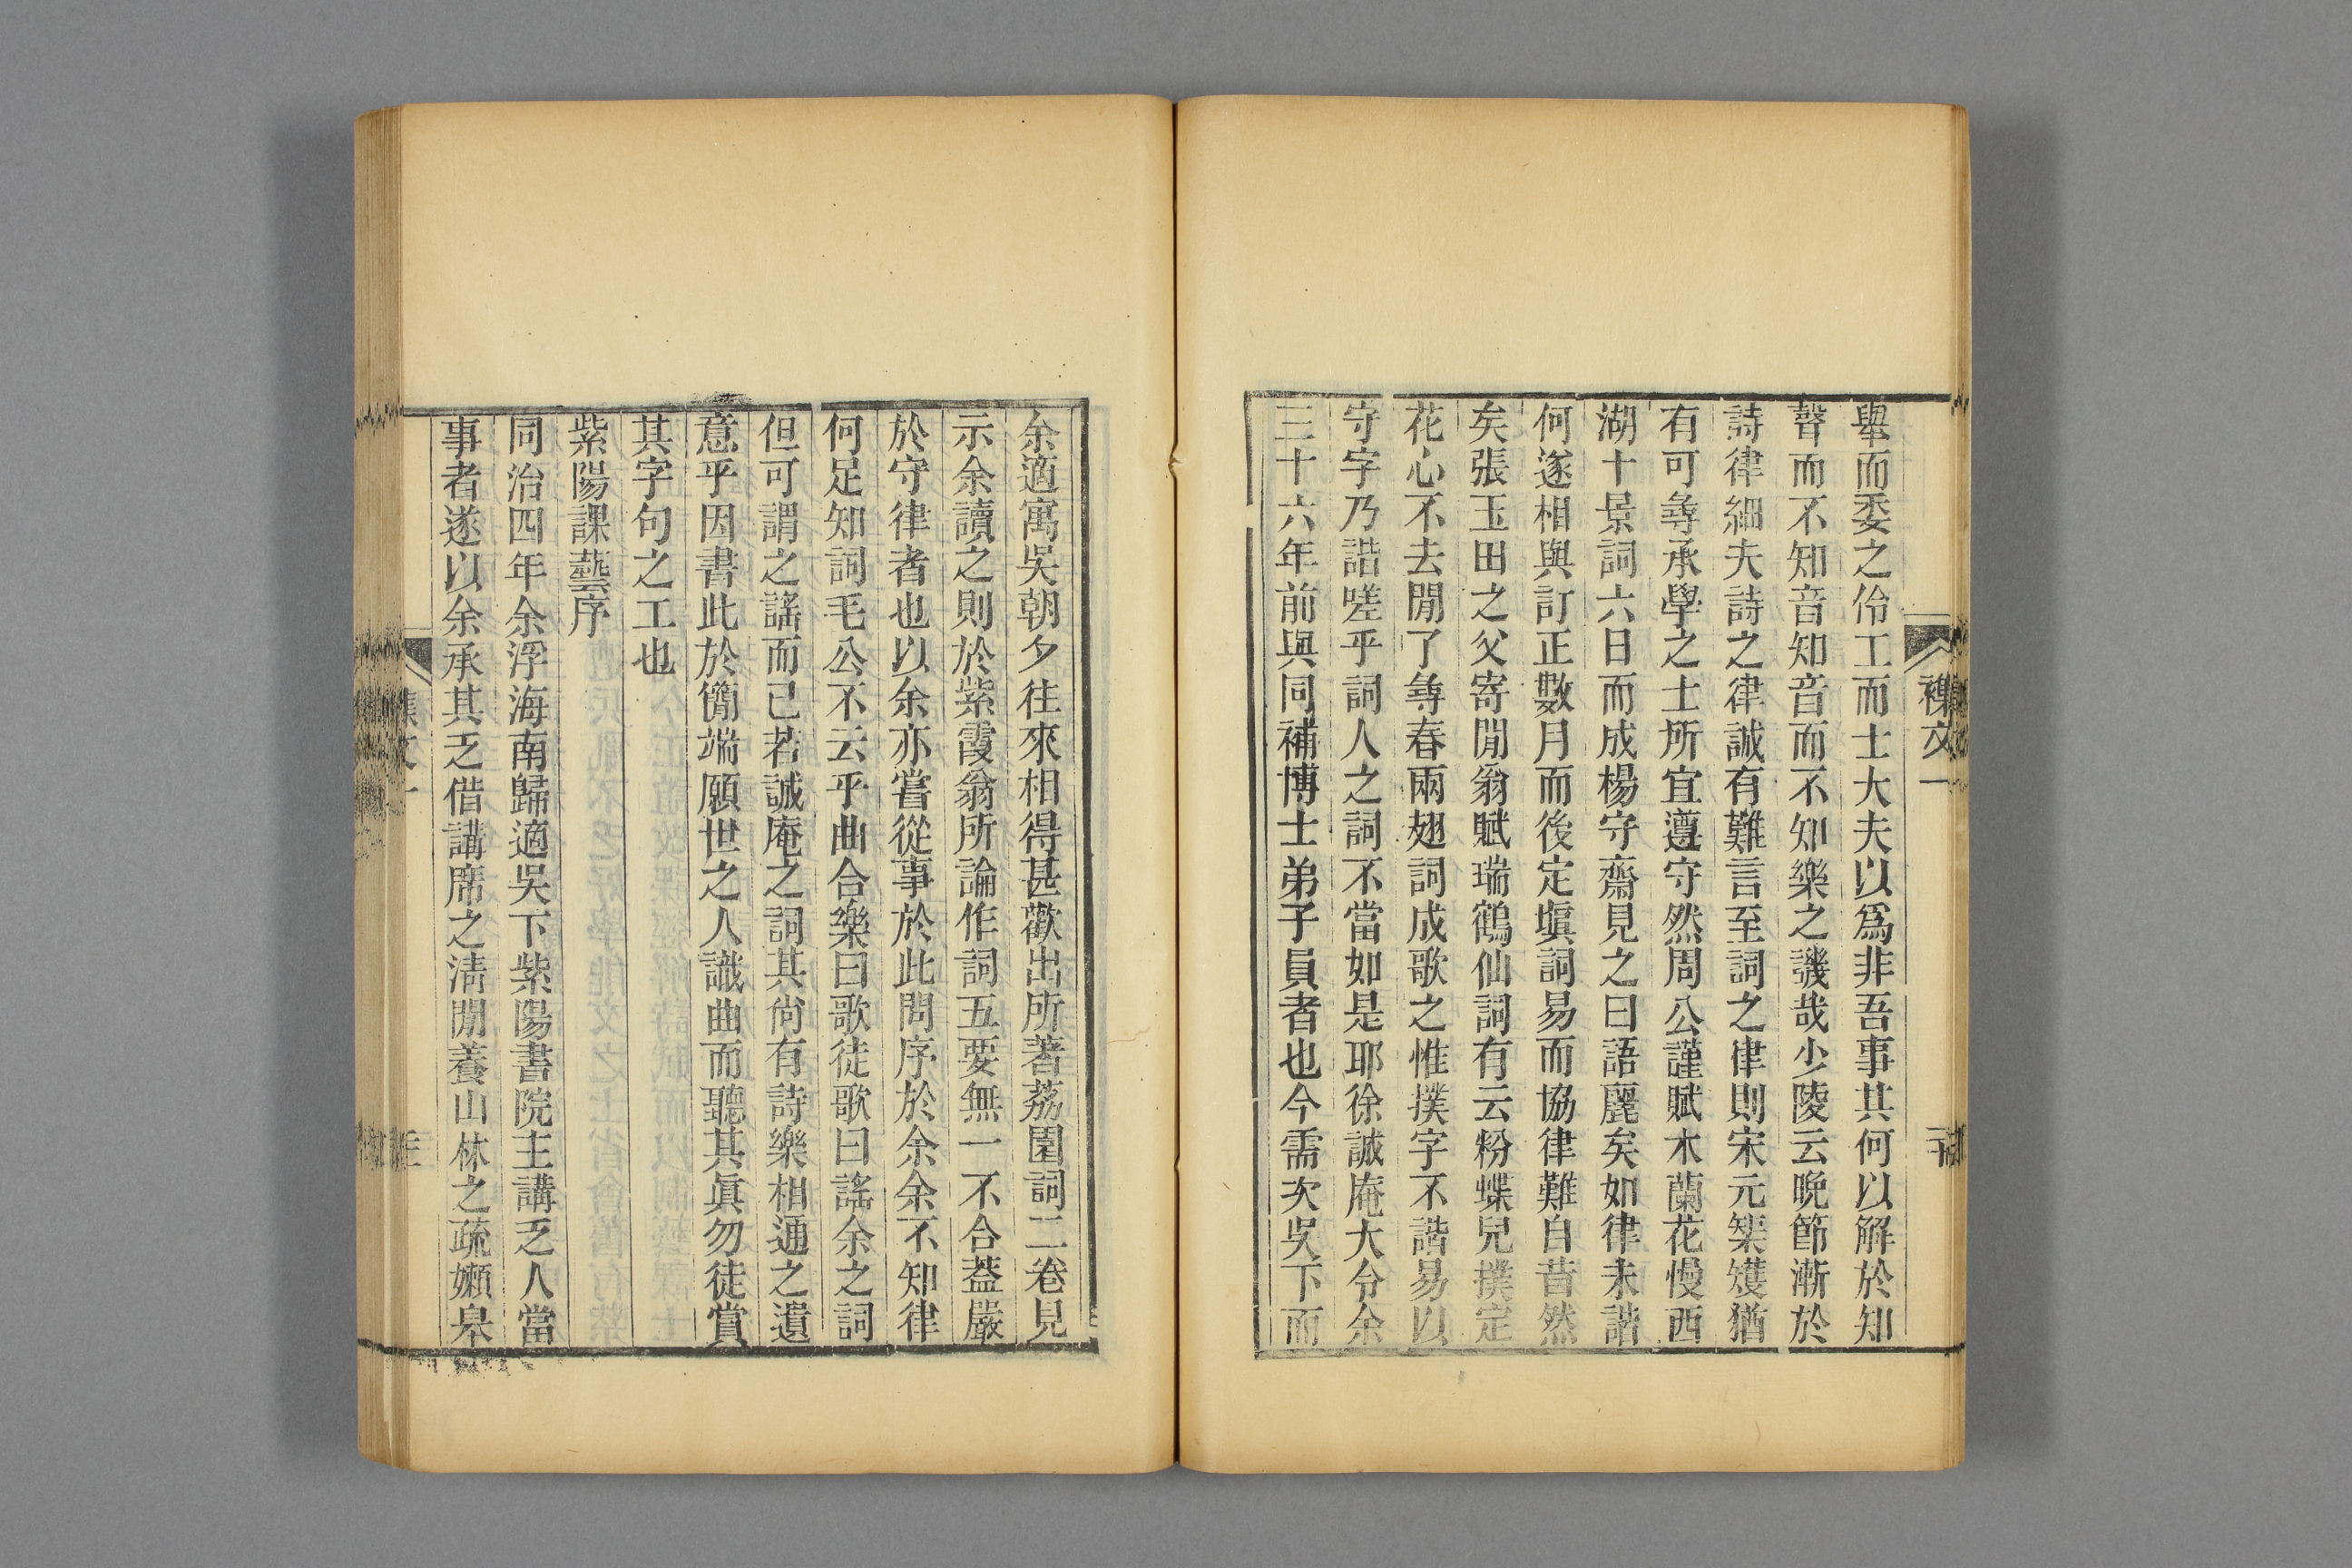 襍文一
舉而委之伶工而士大夫以爲非吾事其何以解於知
聲而不知音知音而不知樂之譏哉少陵云晚節漸於
詩律細夫詩之律誠有難言至詞之律則宋元榘矱猶
有可尋承學之士所宜遵守然周公謹賦木蘭花慢西
湖十景詞六日而成楊守齋見之曰語麗矣如律未諧
何遂相與訂正數月而後定塡詞易而協律難自昔然
矣張玉田之父寄閒翁賦瑞鶴仙詞有云粉蝶兒撲定
花心不去閒了尋春兩翅詞成歌之惟撲字不諧易以
守字乃諧嗟乎詞人之詞不當如是耶徐誠庵大令余
三十六年前與同補博士弟子員者也今需次吳下而
余適寓吳朝夕往來相得甚歡出所著荔園詞二卷見
示余讀之則於紫霞翁所論作詞五要無一不合葢嚴
於守律者也以余亦嘗從事於此問序於余余不知律
何足知詞毛公不云乎曲合樂曰歌徒歌曰謠余之詞
但可謂之謠而已若誠庵之詞其尙有詩樂相通之遺
意乎因書此於簡端願世之人識曲而聽其眞勿徒賞
其字句之工也
紫陽課藝序
同治四年余浮海南歸適吳下紫陽書院主講乏人當
事者遂以余承其乏借講席之淸閒養山林之疏嬾皋